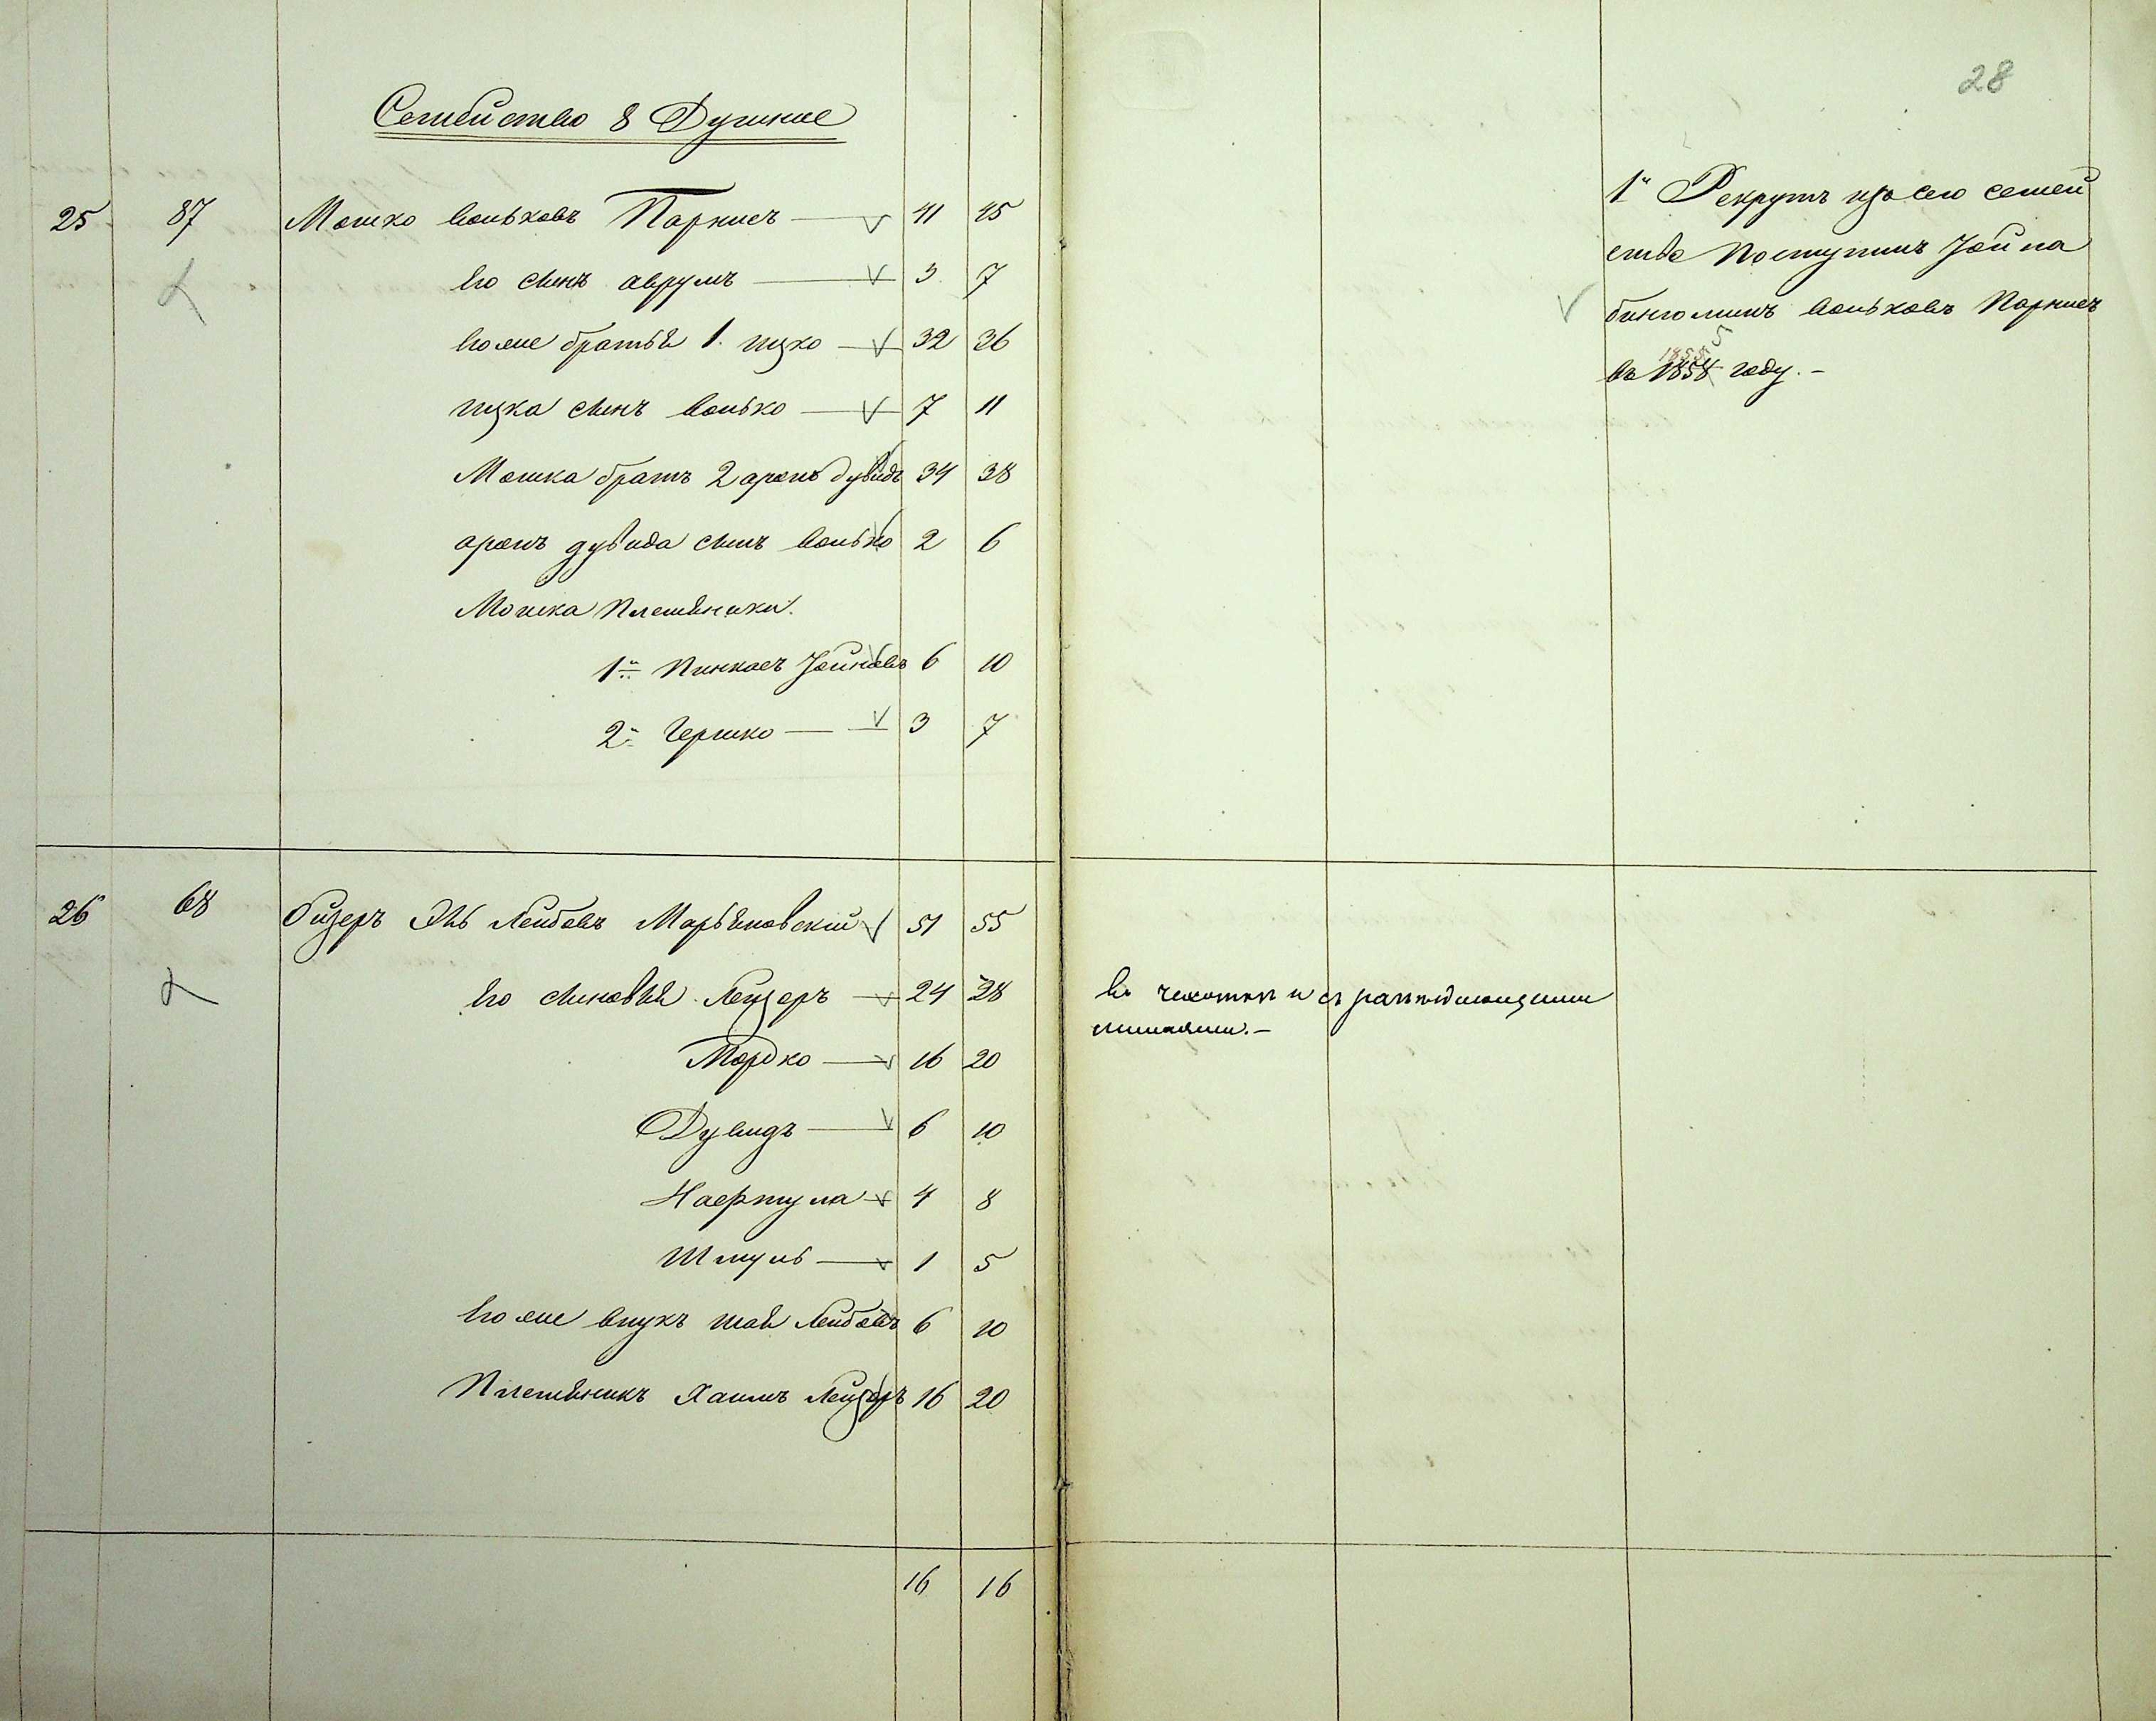 28
Семейство 8 Душное
25 87 Мошко Вольковъ Паркисъ 41 45
Его сынъ Аврумъ 3 7
Его же братья 1. Ицко 32 36
Ицка сынъ Волько 7 11
Мошка братъ 2 Аронъ Дувидъ 34 38
Аронъ Дувида сынъ Волько 2 6
Мошка Племяники.
1й Пинкасъ Іойновъ 6 10
2й Гершко 3 7
1й Рекрутъ изъ сего семей
ства Поступилъ Іойна
Вольковъ Паркисъ
1855
въ 1858 году. –
26 68 Лейбовъ Марьяновскій 51 55
Его сыновья Лейзеръ 24 28
въ чахоткѣ и съ
Мордко 16 20
Дувидъ 6 10
Нафтула 4 8
Шмуль 1 5
Его же внукъ Шая Лейбовъ 6 10
Племяникъ Хаимъ Лейзеръ 16 20
16 16